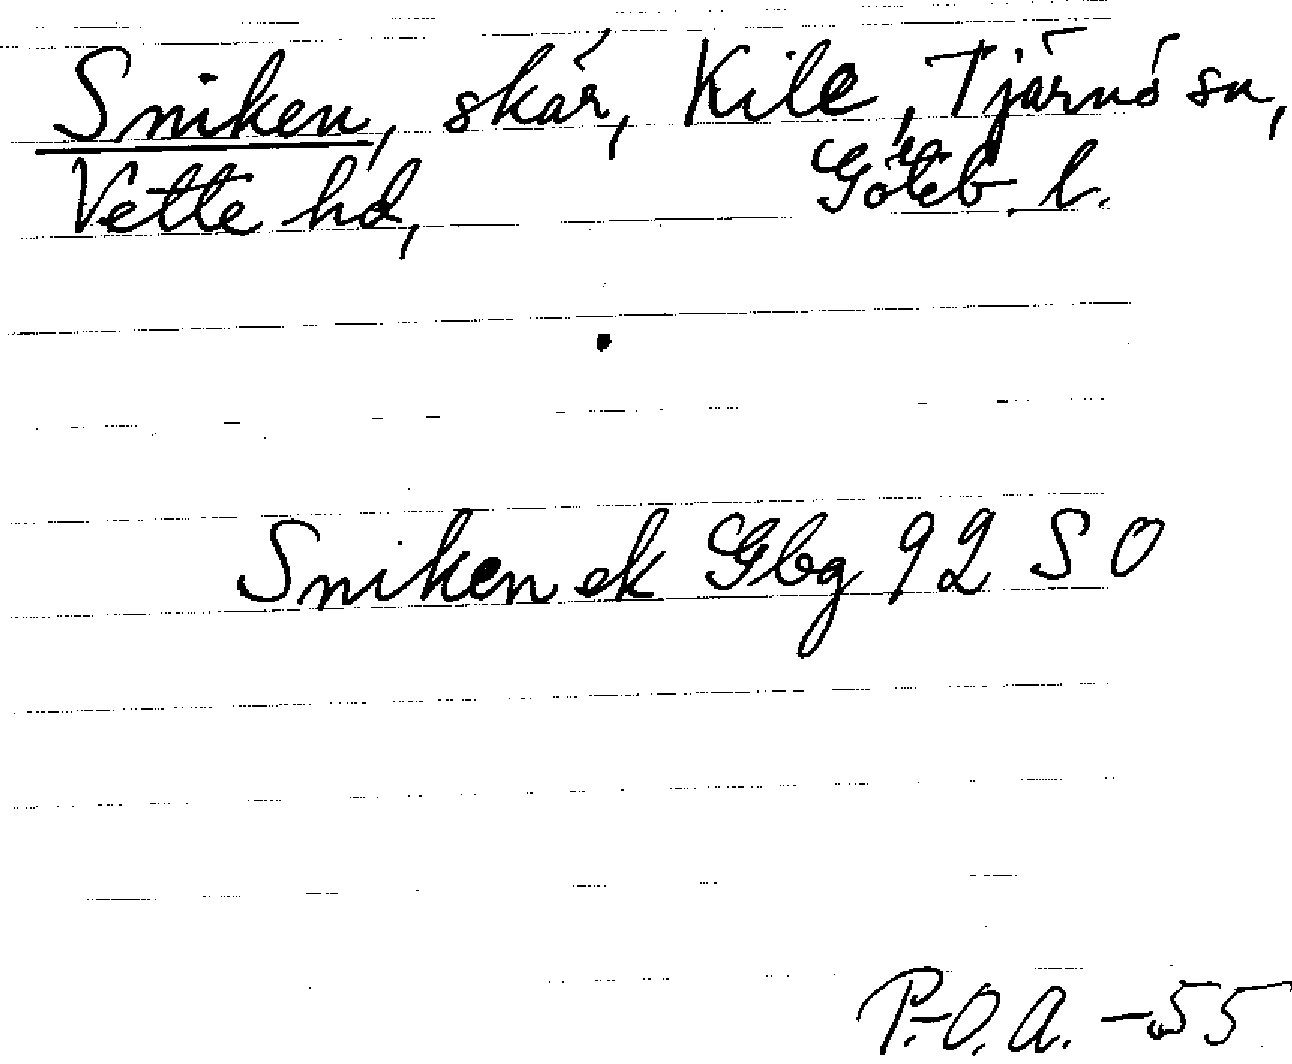 Sniken, skär, Kile, Tjärnö sn,
Vette hd, Göteb. l.
Sniken ek Gbg 92 SO
P.-O. A. -55